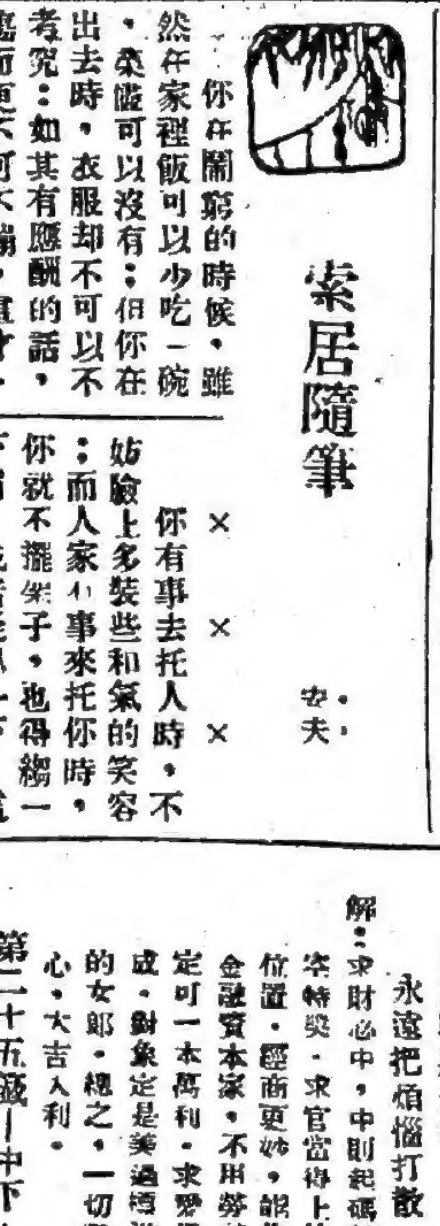 索居隨筆
安夫
你在鬧窮的時候，雖
然在家裡飯可以少吃一碗
，菜儘可以沒有；但你在
出去時，衣服却不可以不
考究：如其有應酬的話，
× × ×
你有事去托人時，不
妨臉上多裝些和氣的笑容
；而人家有事來托你時，
你就不擺架子，也得縐一
永遠把煩惱打散
解：求財必中，中則起碼
特獎．求官當得上
位置．經商更妙，能
金融資本家．不用勞
定可一本萬利．求愛
成．對象定是美過
的女郎．總之，一切
心．大吉大利．
第二十五籤—中下